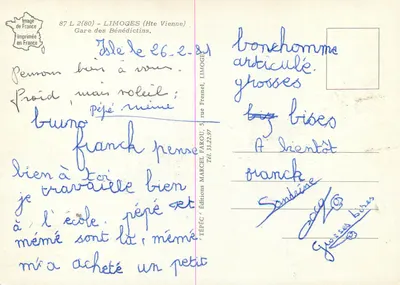 Image de France
Imprimée en France
87 L 2(80) - LIMOGES (Hte Vienne)
Gare des Bénédictins.
Isle le 26-2-81
Pensons bien à vous.
Froid, mais soleil;
pépé mémé
bruno
franck pense
bien à toi
je travaille bien
à l'école. pépé et
mémé sont là, mémé
m'a acheté un petit
PÉPÉC Éditions MARCEL FAROU, 5, rue Fresnel, LIMOGES
Tél. 13.22.97
bonhomme
articulé.
grosses
bises
A bientôt
franck
Sandrine
Grosses bises